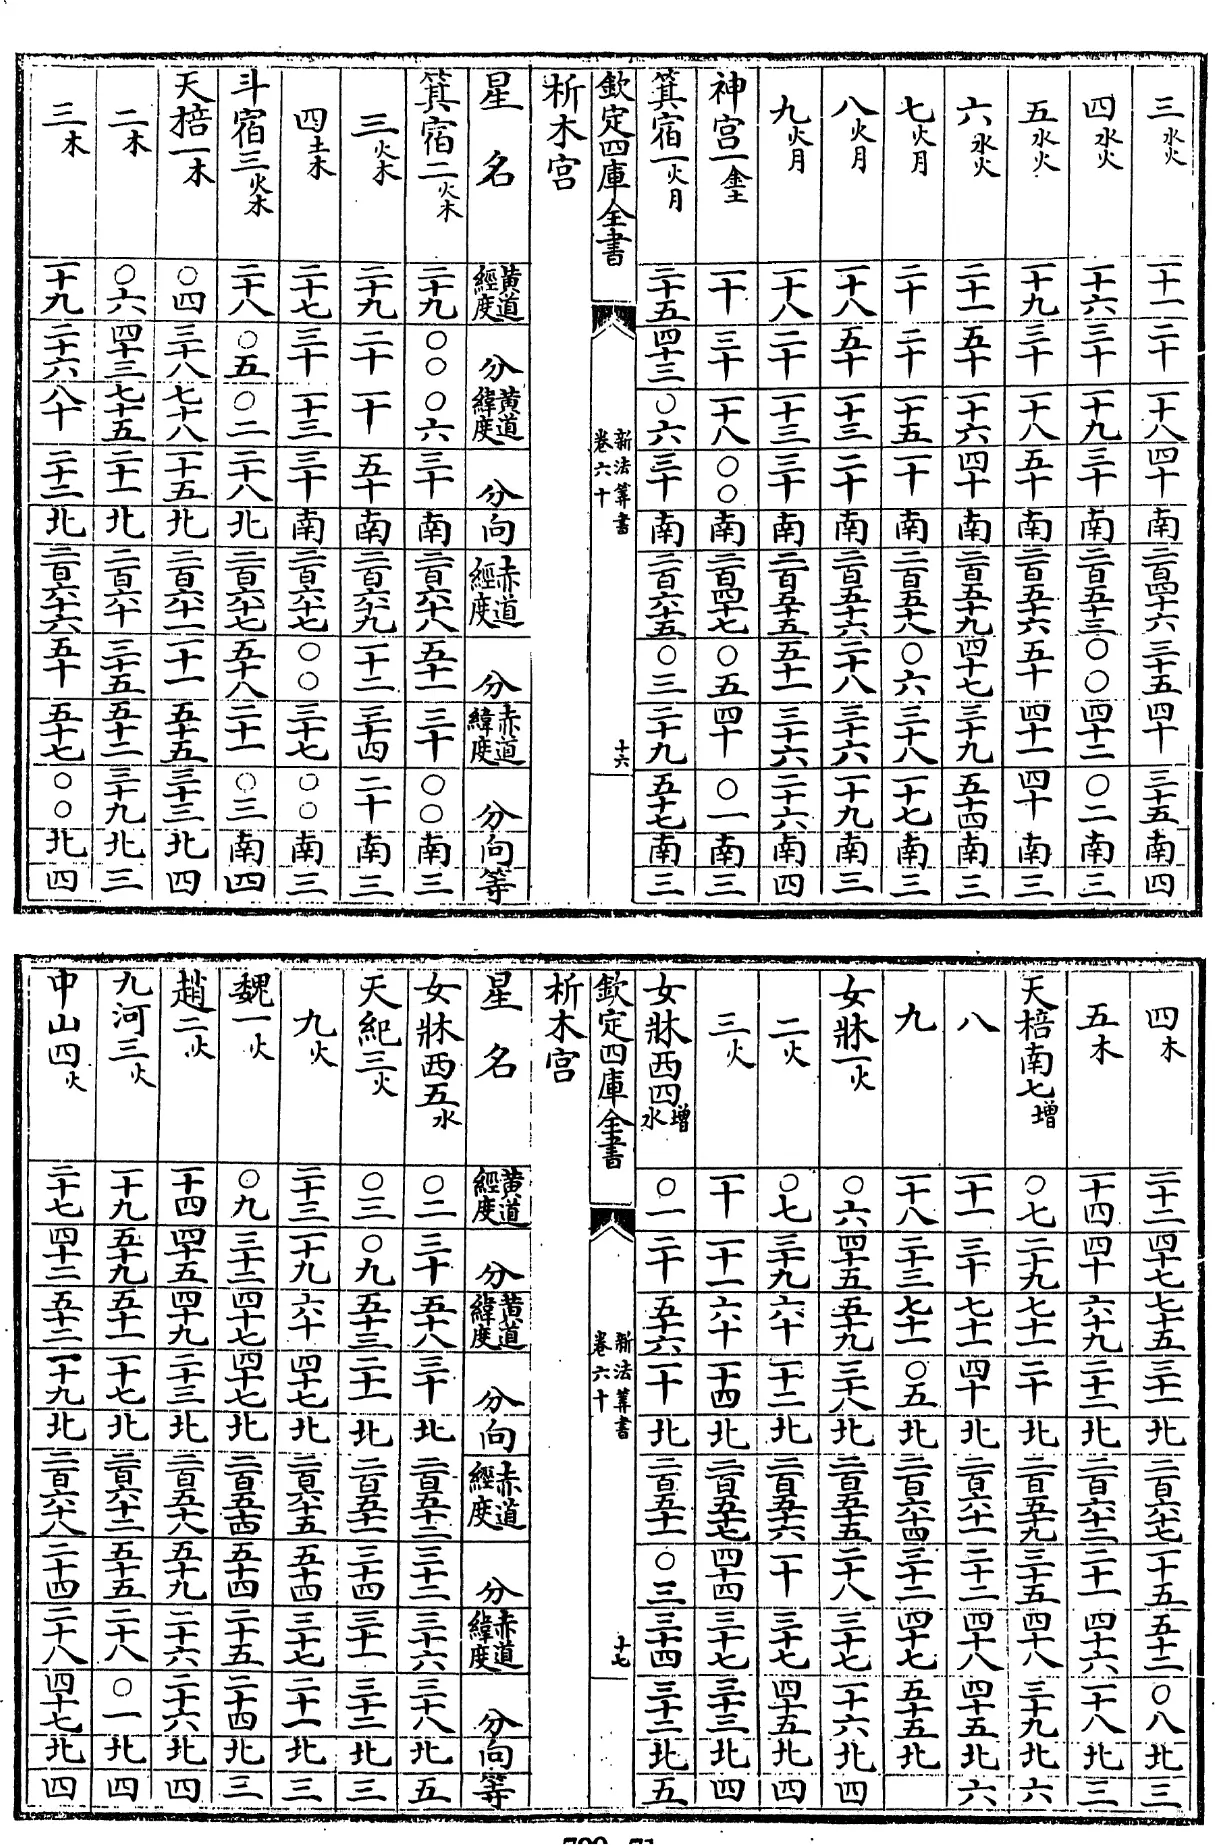 三水火 一十一 二十 一十八 四十 南 二百四十六 三十五 四十 三十五 南 四
四水火 一十六 三十 一十九 三十 南 二百五十三 〇〇 四十二 〇二 南 三
五水火 一十九 三十 一十八 五十 南 二百五十六 五十 四十一 四十 南 三
六水火 二十一 五十 一十六 四十 南 二百五十九 四十七 三十九 五十四 南 三
七火月 二十 二十 一十五 一十 南 二百五十八 〇六 三十八 一十七 南 三
八火月 一十八 五十 一十三 二十 南 二百五十六 二十八 三十六 一十九 南 三
九火月 一十八 二十 一十三 三十 南 二百五十五 五十一 三十六 二十六 南 四
神宫一金土 一十 三十 一十八 〇〇 南 二百四十七 〇五 四十 〇一 南 三
箕宿一火月 二十五 四十三 〇六 三十 南 二百六十五 〇三 二十九 五十七 南 三
欽定四庫全書 新法算書 卷六十 十六
析木宫
星名 黄道經度 分 黄道緯度 分 向 赤道經度 分 赤道緯度 分 向 等
箕宿二火木 二十九 〇〇 〇六 三十 南 二百六十八 五十一 三十 〇〇 南 三
三火木 二十九 二十 一十 五十 南 二百六十九 一十二 三十四 二十 南 三
四土木 二十七 三十 一十三 三十 南 二百六十七 〇〇 三十七 〇〇 南 三
斗宿三火木 二十八 〇五 〇二 二十八 北 二百六十七 五十八 二十一 〇三 南 四
天棓一木 〇四 三十八 七十八 一十五 北 二百六十一 一十一 五十五 三十三 北 四
二木 〇六 四十三 七十五 二十一 北 二百六十 三十五 五十二 三十九 北 三
三木 一十九 二十六 八十 二十二 北 二百六十六 五十 五十七 〇〇 北 四
四木 二十二 四十七 七十五 三十一 北 二百六十七 一十五 五十二 〇八 北 三
五木 一十四 四十 六十九 二十二 北 二百六十二 二十一 四十六 一十八 北 三
天棓南七增 〇七 二十九 七十一 二十 北 二百五十九 三十五 四十八 三十九 北 六
八 一十一 三十 七十一 四十 北 二百六十一 二十二 四十八 四十五 北 六
九 一十八 二十三 七十一 〇五 北 二百六十四 三十二 四十七 五十五 北
女牀一火 〇六 四十五 五十九 三十八 北 二百五十五 二十八 三十七 一十六 北 四
二火 〇七 三十九 六十 一十二 北 二百五十六 一十 三十七 四十五 北 四
三火 一十 一十一 六十 一十四 北 二百五十七 四十四 三十七 三十三 北 四
女牀西四增水 〇一 二十 五十六 一十 北 二百五十一 〇三 三十四 三十二 北 五
欽定四庫全書 新法算書 卷六十 十七
析木宫
星名 黄道經度 分 黄道緯度 分 向 赤道經度 分 赤道緯度 分 向 等
女牀西五水 〇二 三十 五十八 三十 北 二百五十二 三十二 三十六 三十八 北 五
天紀三火 〇三 〇九 五十三 二十一 北 二百五十一 三十四 三十一 三十二 北 三
九火 二十三 一十九 六十 四十七 北 二百六十五 五十四 三十七 二十一 北 三
魏一火 〇九 三十二 四十七 四十七 北 二百五十四 五十四 二十五 二十四 北 三
趙二火 一十四 四十五 四十九 二十三 北 二百五十八 五十九 二十六 二十六 北 四
九河三火 一十九 五十九 五十一 一十七 北 二百六十二 五十五 二十八 〇一 北 四
中山四火 二十七 四十二 五十二 一十九 北 二百六十八 二十四 二十八 四十七 北 四